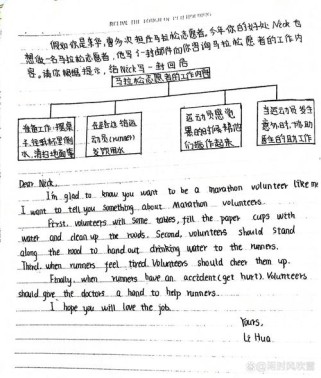 假如你是李华,曾多次担任马拉松志愿者。今年你的好友Nick也
想做一名马拉松志愿者,他写了一封邮件向你咨询马拉松志愿者的工作内
容。请你根据提示,给Nick写一封回信
马拉松志愿者的工作内容
准备工作:摆桌
子,往纸杯里倒
水,清扫地面等
在路边给运
动员(runner)
发饮用水
运动员感觉
累的时候,给他
们振作起来
当运动员发生
意外时,协助
医生的救助工作
Dear Nick,
I'm glad to know you want to be a marathon volunteer like me
I want to tell you something about Marathon volunteers.
First, volunteers will some tables, fill the paper cups with
water and clean up the roads. Second, volunteers should stand
along the road to hand out drinking water to the runners.
Third, when runners feel tired. Volunteers should cheer them up.
Finally, when runners have an accident (get hurt). Volunteers
should give the doctors a hand to help runners.
I hope you will love the job.
Yours,
Li Hua